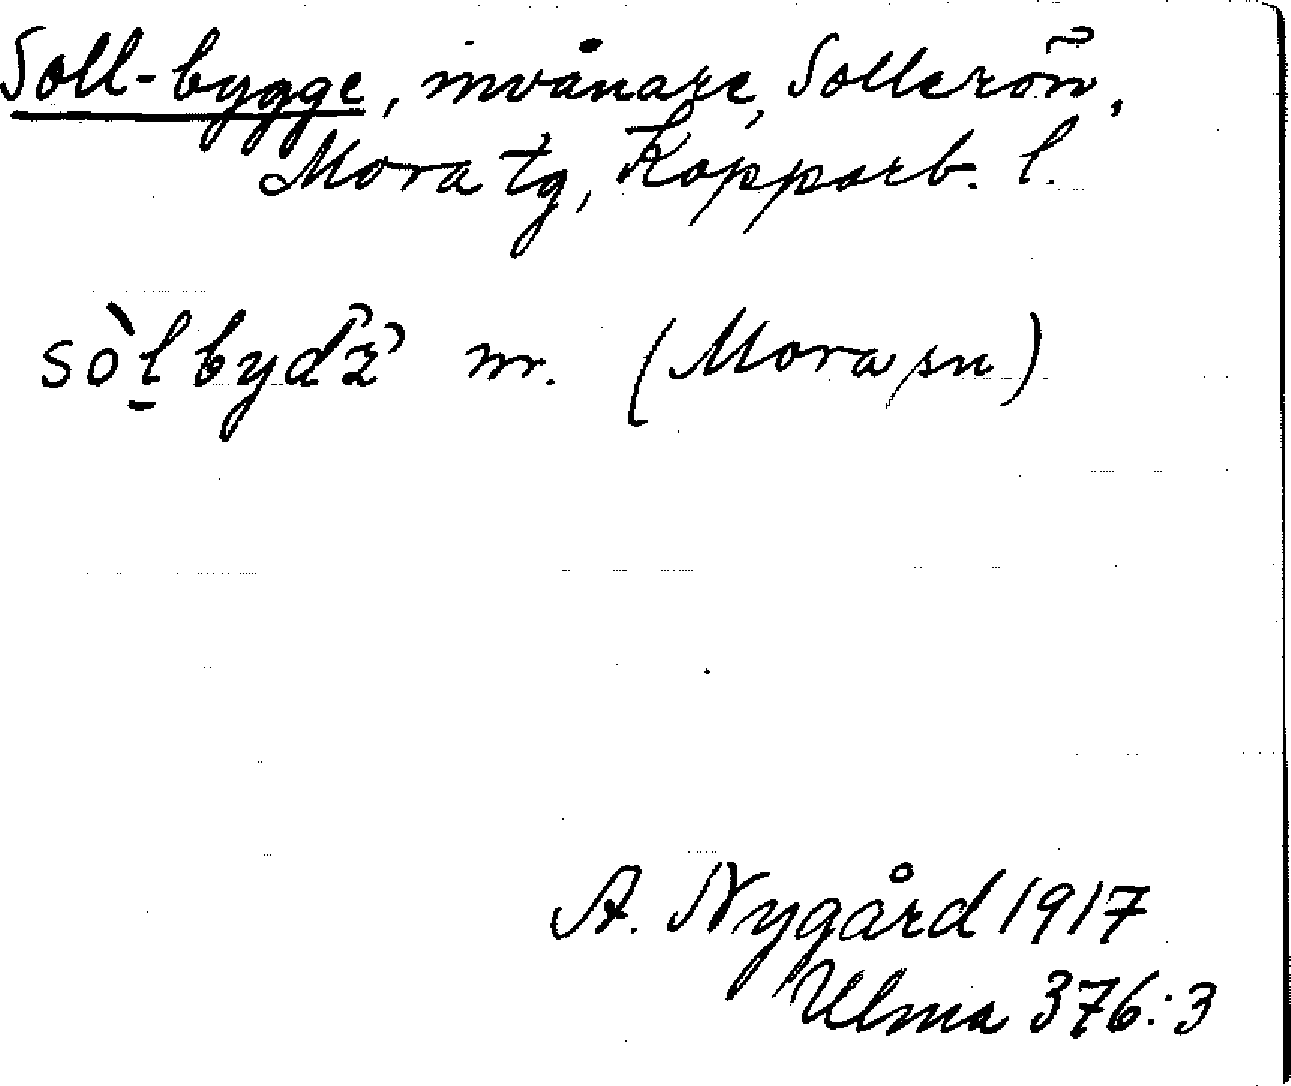 Soll-bygge, invånare, Sollerön,
Mora tg, Kopparb. l.
sò̀ḻbydź̓ m. (Mora sn)
A. Nygård 1917
Ulma 376:3